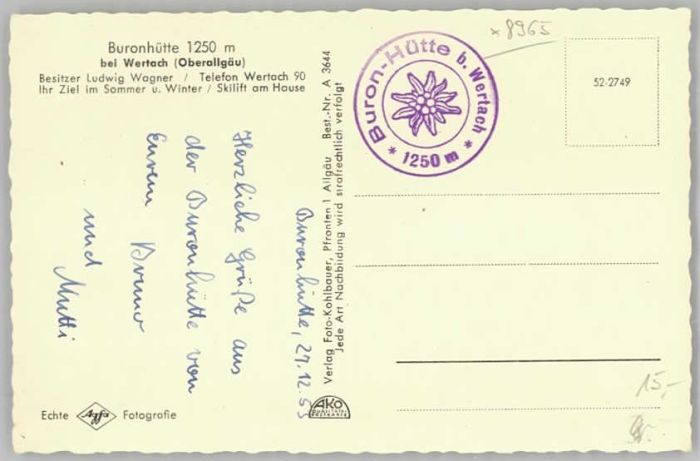 Buronhütte 1250 m
bei Wertach (Oberallgäu)
Besitzer Ludwig Wagner / Telefon Wertach 90
Ihr Ziel im Sommer u. Winter / Skilift am Hause
Buronhütte, 27.12.55
Herzliche Grüße aus
der Buronhütte von
Eurem Bruno
und Mutti
Echte Agfa Fotografie
Verlag Foto-Kohlbauer, Pfronten 1 Allgäu Best.-Nr. A 3644
Jede Art Nachbildung wird strafrechtlich verfolgt
AKO
Buron-Hütte b. Wertach
* 1250 m *
x 8965
52-2749
15,-